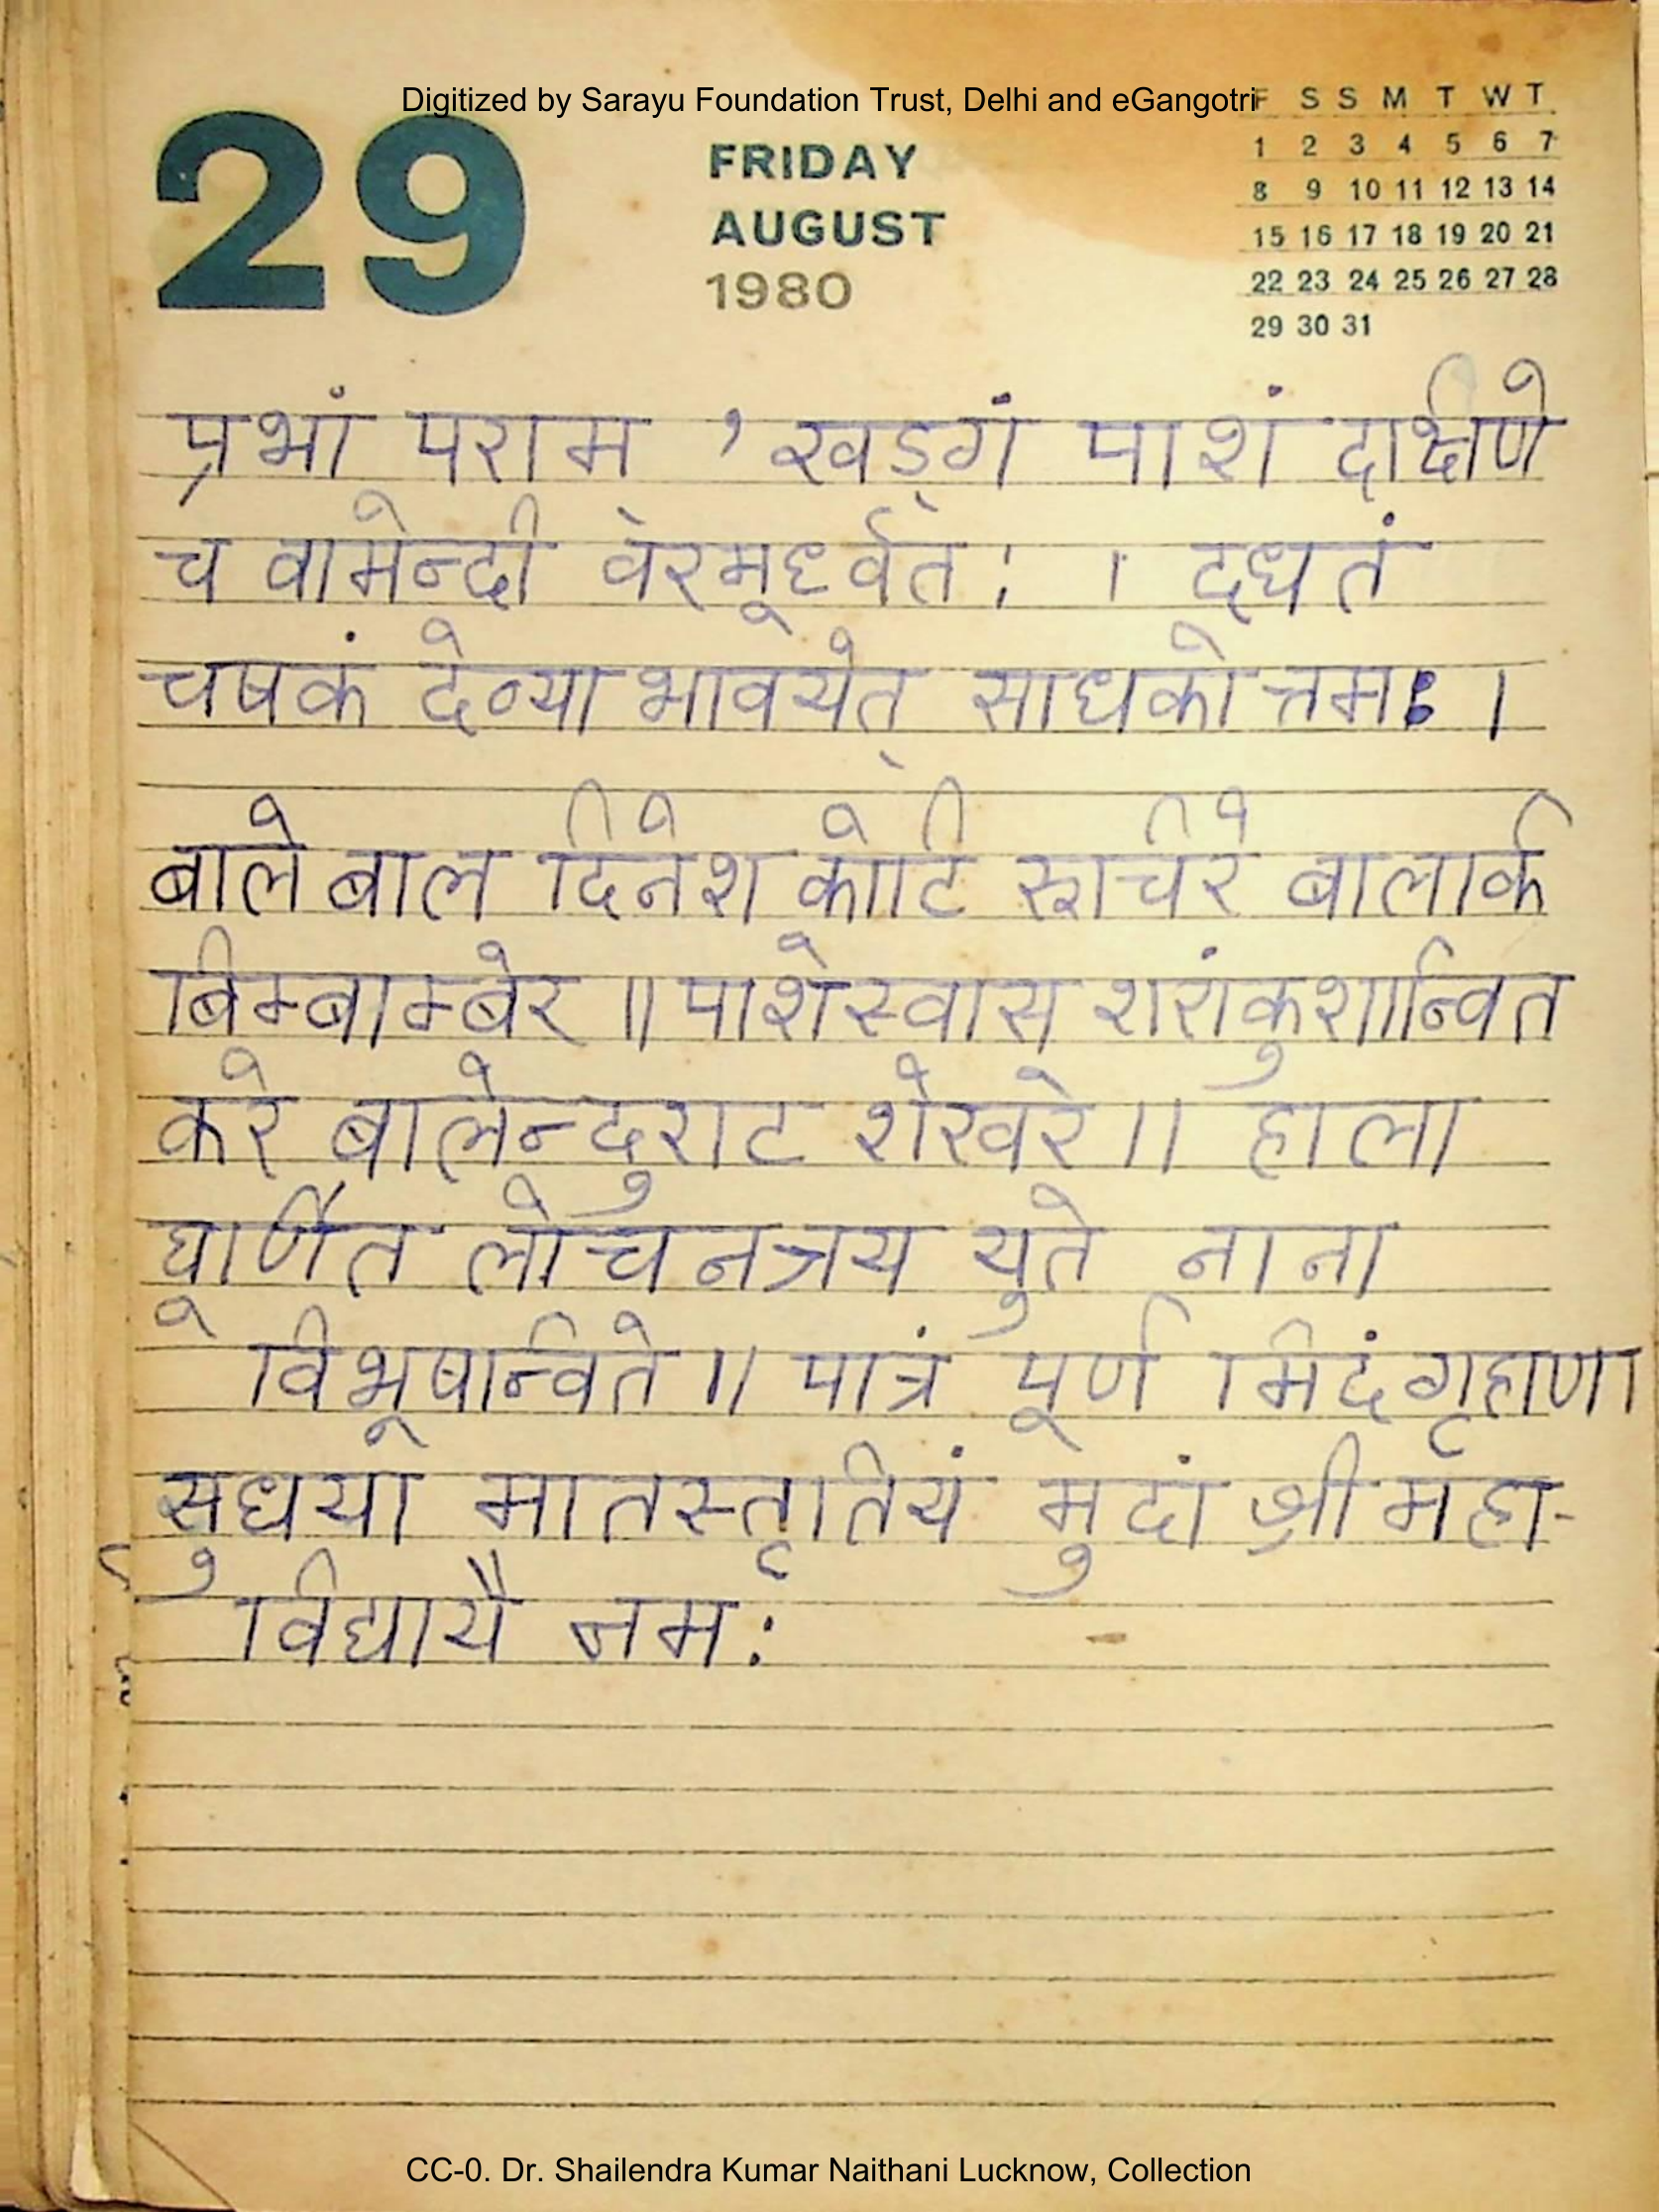 Digitized by Sarayu Foundation Trust, Delhi and eGangotri
29
FRIDAY
AUGUST
1980
F S S M T W T
1 2 3 4 5 6 7
8 9 10 11 12 13 14
15 16 17 18 19 20 21
22 23 24 25 26 27 28
29 30 31
प्रभां पराम , खड्गं पाशं दक्षिणे
च वामेन्दी वरमूर्ध्वत: । दधतं
चषकं देव्या भावयेत् साधकोत्तम: ।
बाले बाल दिनेश कोटि रुचिरे बालार्क
बिम्बाम्बरे ॥ पाशेस्वास शरांकुशान्वित
करे बालेन्दुराट शेखरे ॥ हाला
घूर्णित लोचनत्रय युते नाना
विभूषान्विते ॥ पात्रं पूर्ण मिदं गृहाण।
सुधया मातस्तृतियं मुदां श्री महा-
विद्यायै नम:
CC-0. Dr. Shailendra Kumar Naithani Lucknow, Collection